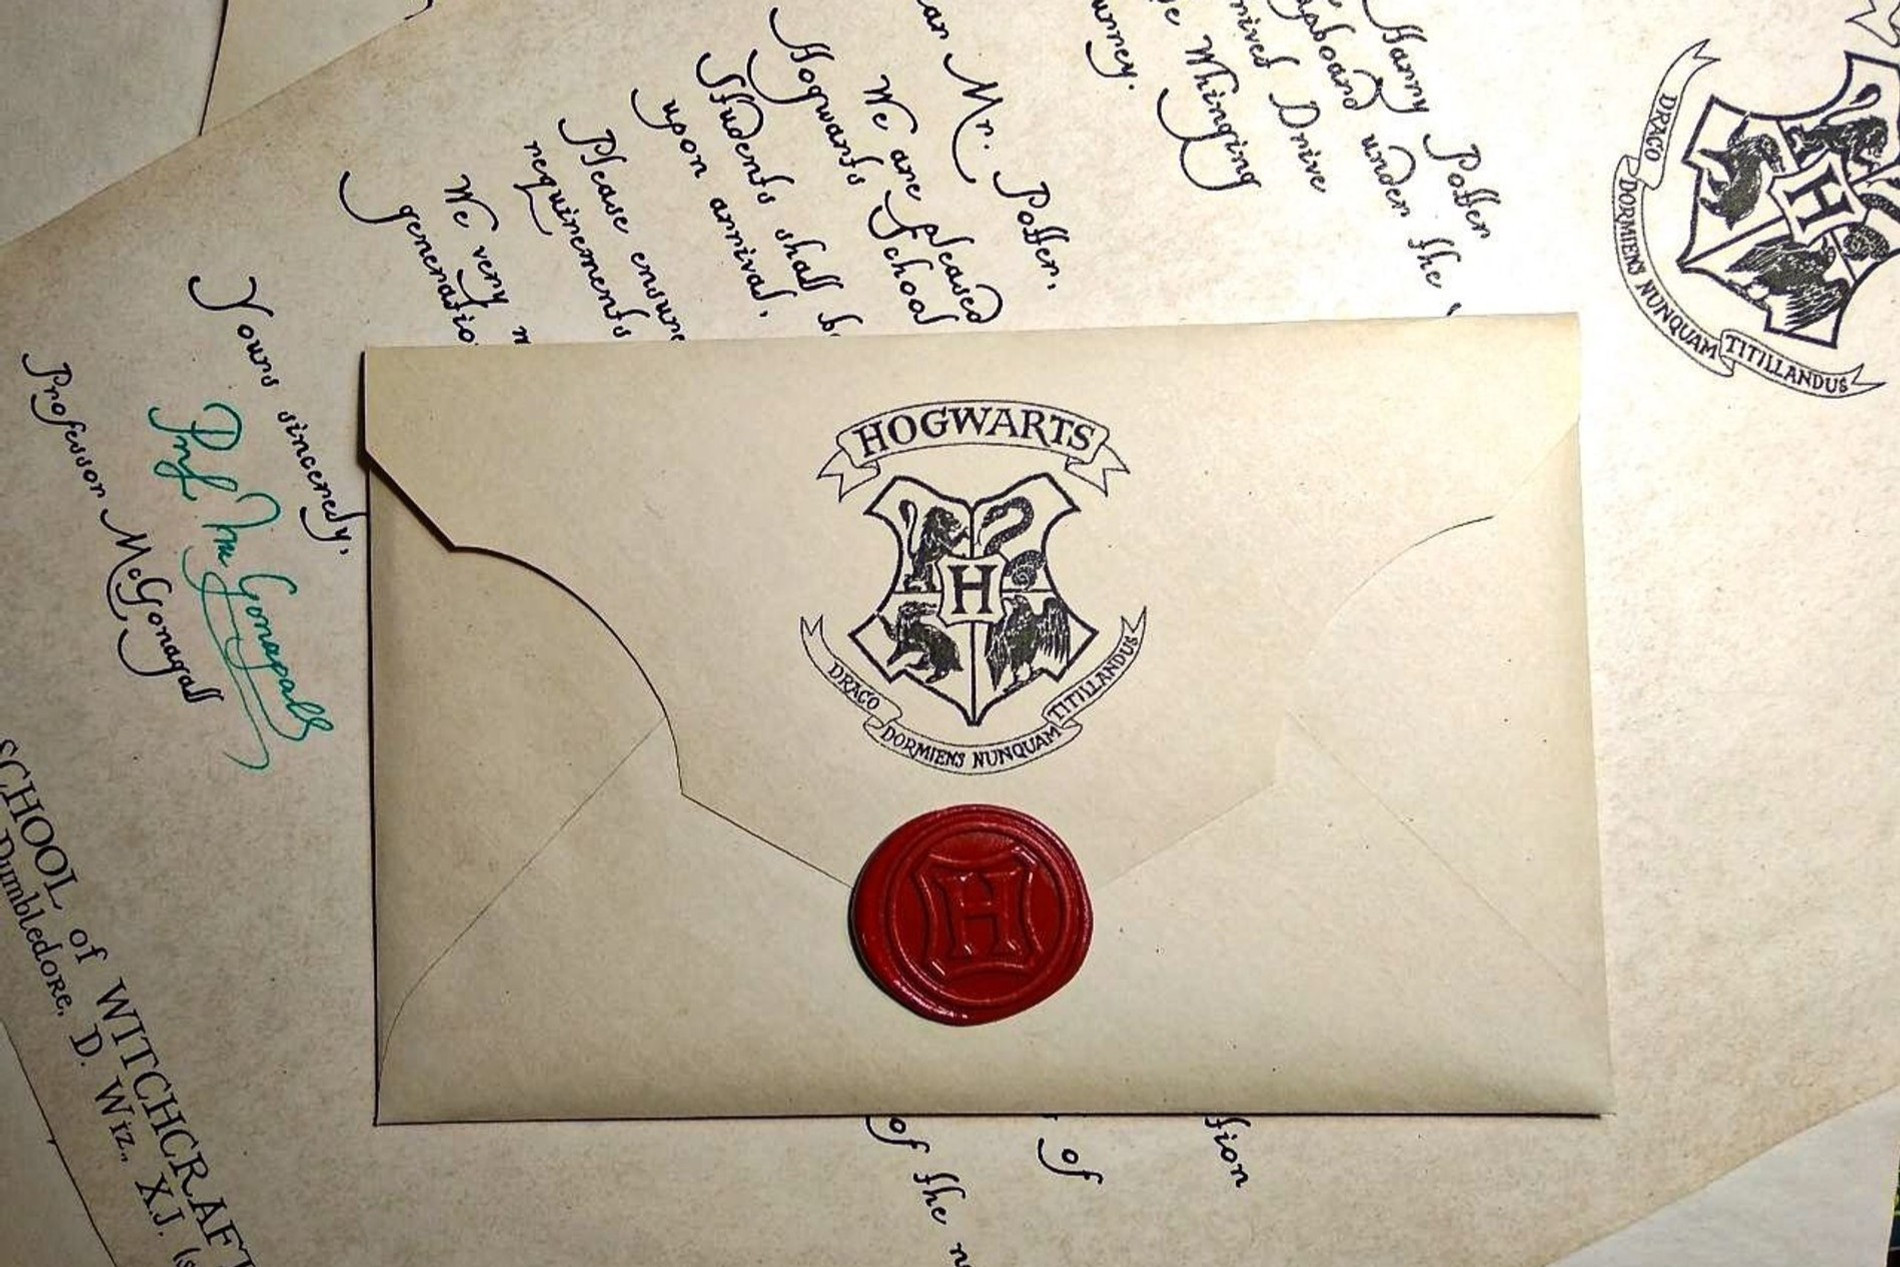 Harry Potter
under the
Drive
Whinging
Mr. Potter,
We are pleased
Hogwarts School
Students shall
upon arrival,
Please ensure
requirements
We very
Yours sincerely,
Prof McGonagall
Professor McGonagall
DRACO DORMIENS NUNQUAM TITILLANDUS
HOGWARTS
H
DRACO DORMIENS NUNQUAM TITILLANDUS
H
SCHOOL of WITCHCRAFT
Dumbledore, D. Wiz., X.J.
of the
of